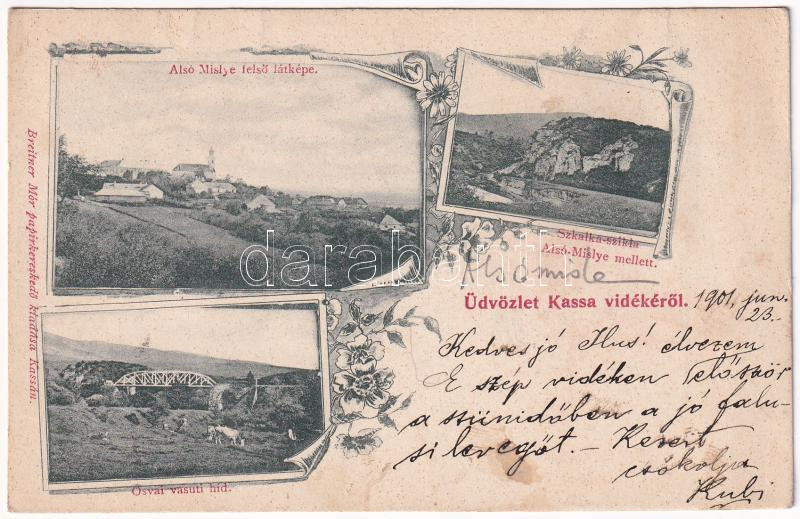 Alsó Mislye felső látképe.
Szkalka-szikla
Alsó-Mislye mellett.
Breitner Mór papirkereskedő kiadása Kassán.
darabanth
Alsómisle
Üdvözlet Kassa vidékéről. 1901. jun.
23.
Kedves jó Ilus! élvezem
E szép vidéken először
a szünidőben a jó falu-
si levegőt. - Kezeit
csókolja
Kubi
Ósvai vasuti híd.